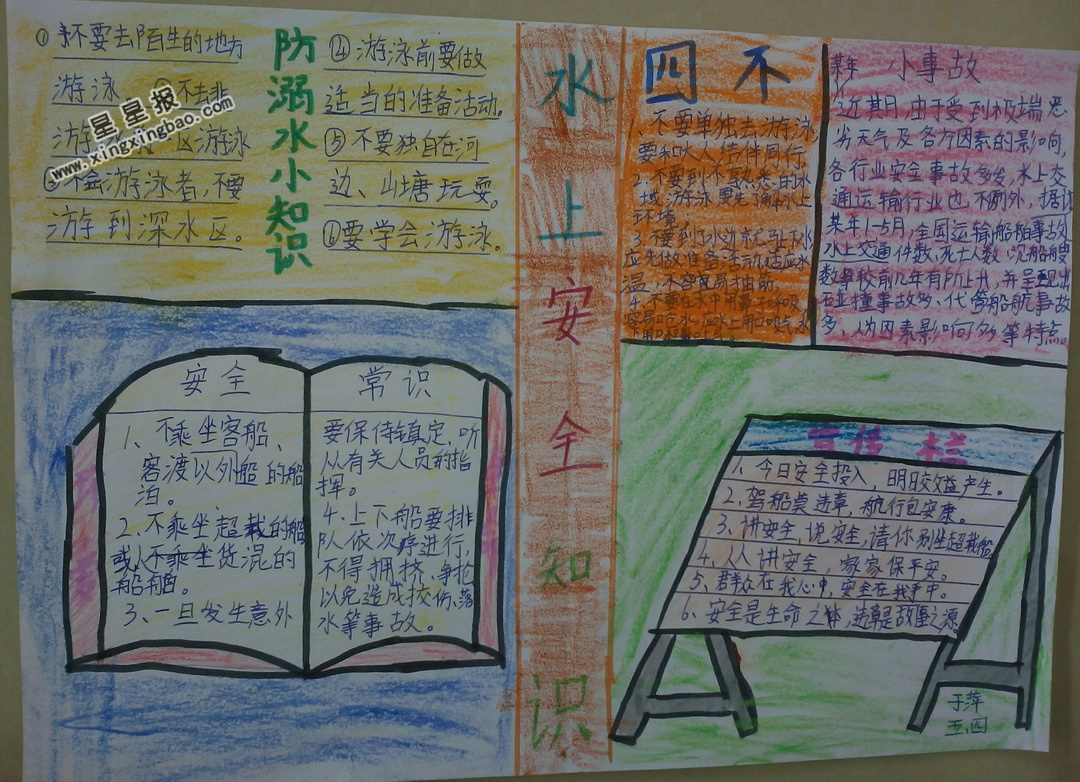 水上安全知识
防溺水小知识
①不要去陌生的地方
游泳
不去非
游 区游泳
不会游泳者,不要
游到深水区。
④游泳前要做
适当的准备活动。
⑤不要独自在河
边、山塘玩耍。
⑥要学会游泳。
星星报
www.xingxingbao.com
四不
1、不要单独去游泳
要和大人结伴同行
2.不要到不熟悉的水
域游泳要先了解水上
环境;
3.不要到了水边就马上下水
应先做准备活动适应水
温,不容易抽筋。
4.不要在水中用鼻子呼吸
容易呛水,应水上用口吸气,水
小事故
某年
近某月由于受到极端恶
劣天气及各方因素的影响,
各行业安全事故多发,水上交
通运输行业也不例外,据
某年1-5月,全国运输船舶事故
水上交通件数,死亡人数、沉船艘
数等较前几年有所上升,并呈现出
碰撞事故多、代管船航事故
多、人为因素影响多等特点。
安全
1、不乘坐客船、
客渡以外船的船
泊。
2.不乘坐超载的船
或人不乘坐货混的
船舶。
3、一旦发生意外
常识
要保侍镇定,听
从有关人员的指
挥。
4、上下船要排
队依次序进行,
不得拥挤、争抢
以免造成挍伤、落
水等事故。
宣传栏
1、今日安全投入,明日效益产生。
2.驾船莫违章,航行包安康。
3、讲安全,说安全,请你别坐超载船
4、人人讲安全,家家保平安。
5、群众在我心中,安全在我手中。
6、安全是生命之体,违章是故里之源
于萍
五.四